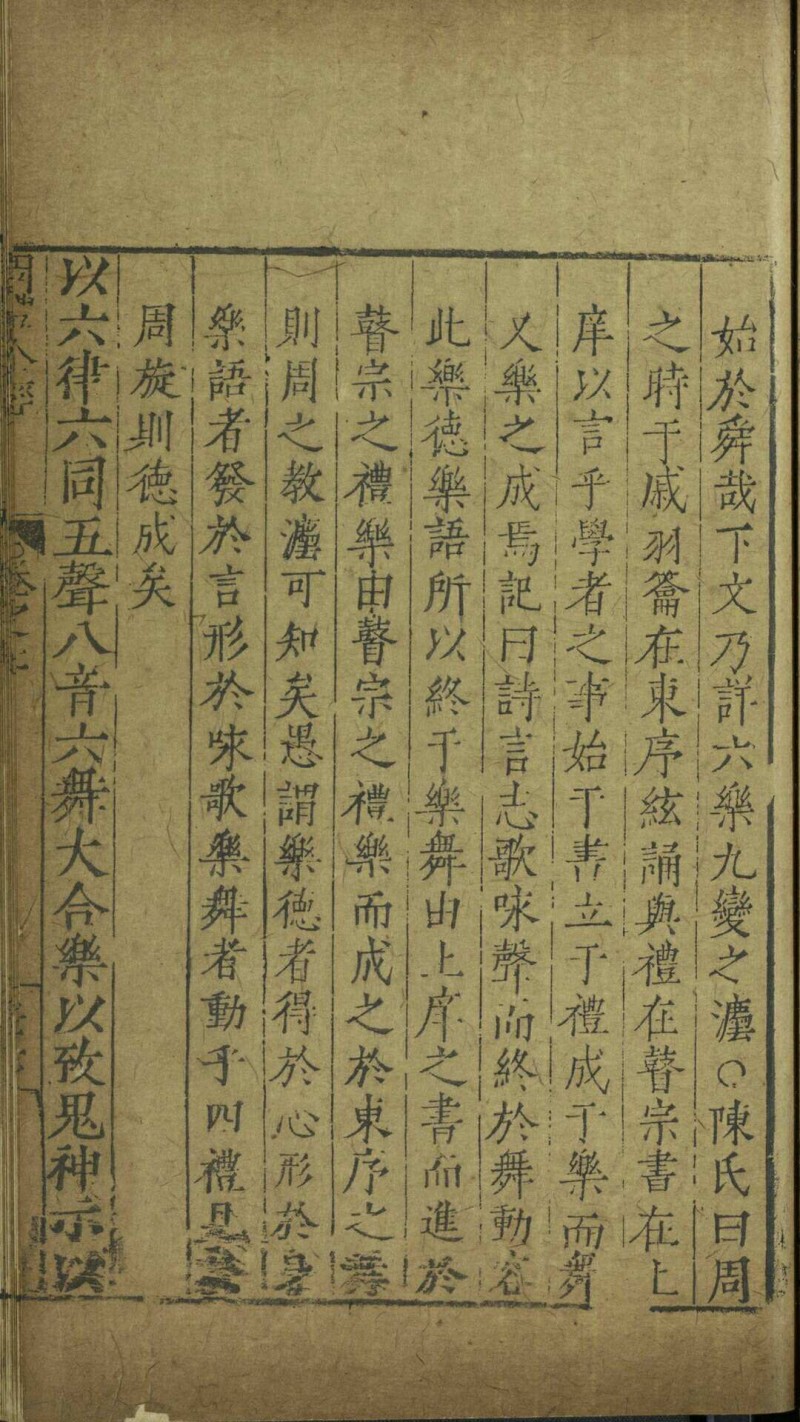 始於舜哉下文乃詳六樂九變之灋○陳氏曰周
之時干戚羽籥在東序絃誦與禮在瞽宗書在上
庠以言乎學者之事始于書立于禮成于樂而舞
又樂之成焉記曰詩言志歌咏聲而終於舞動容
此樂德樂語所以終于樂舞由上庠之書而進於
瞽宗之禮樂由瞽宗之禮樂而成之於東序之舞
則周之教灋可知矣愚謂樂德者得於心形於身
樂語者發於言形於咏歌樂舞者動乎四禮
周旋則德成矣
以六律六同五聲八音六舞大合樂以致鬼神示以